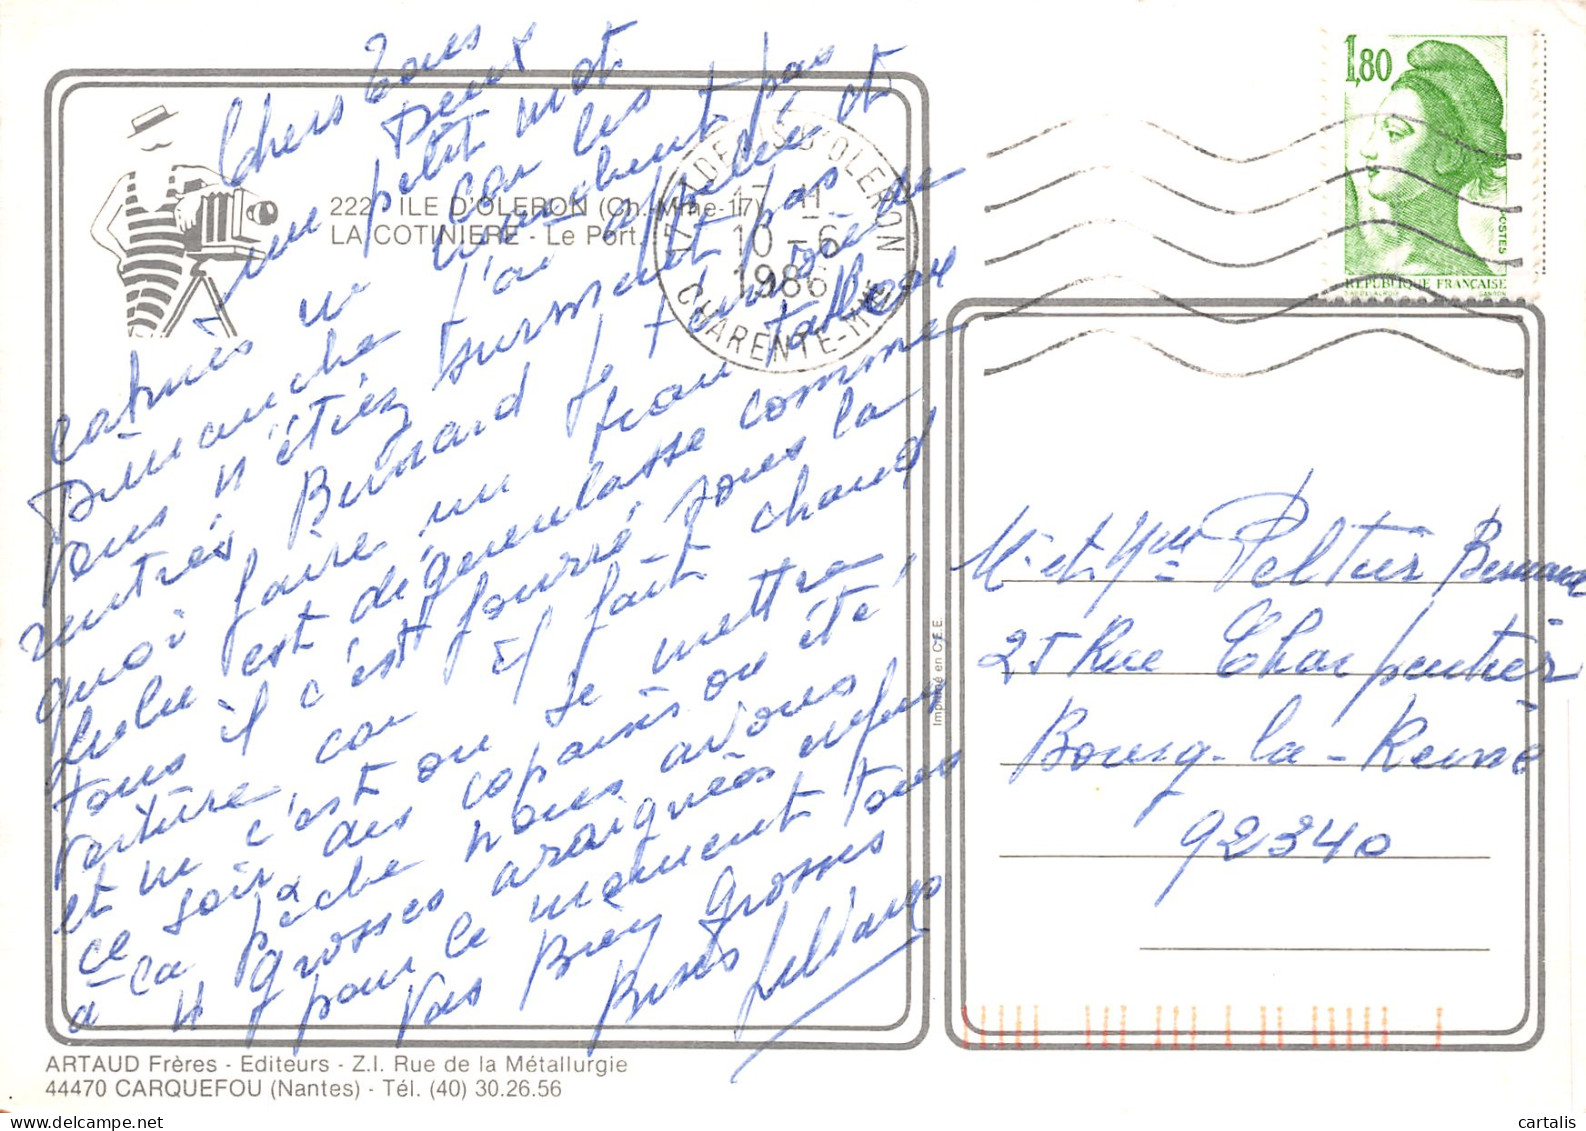 Chers Tous
Deux
un petit mot
car les
cartes ne marchent pas
Dimanche j'ai appelé et
vous n'étiez surment pas
rentrés Bernard je t'envoie de
quoi faire un frau tableau
Lulu est déguenlasse comme
tous il c'est fourré sous la
voiture, car il fait chaud
et ne c'est ou se mettre
ce soir des copains ou été,
à la pêche nous avions
4 grosses araignées enfin
pour le moment tous
Vas Bien Grosses
Bises
222 ILE D'OLERON (Ch.-Mme-17)
LA COTINIERE - Le Port.
17 D'OLERON
17 H
10 - 6
1986
CHARENTE-MME
1,80
POSTES
REPUBLIQUE FRANÇAISE
GANDON
M. et Mme Peltier Bernard
25 Rue Charpentier
Bourg-la-Reine
92340
Imprimé en C.E.E.
ARTAUD Frères - Editeurs - Z.I. Rue de la Métallurgie
44470 CARQUEFOU (Nantes) - Tél. (40) 30.26.56
cartalis